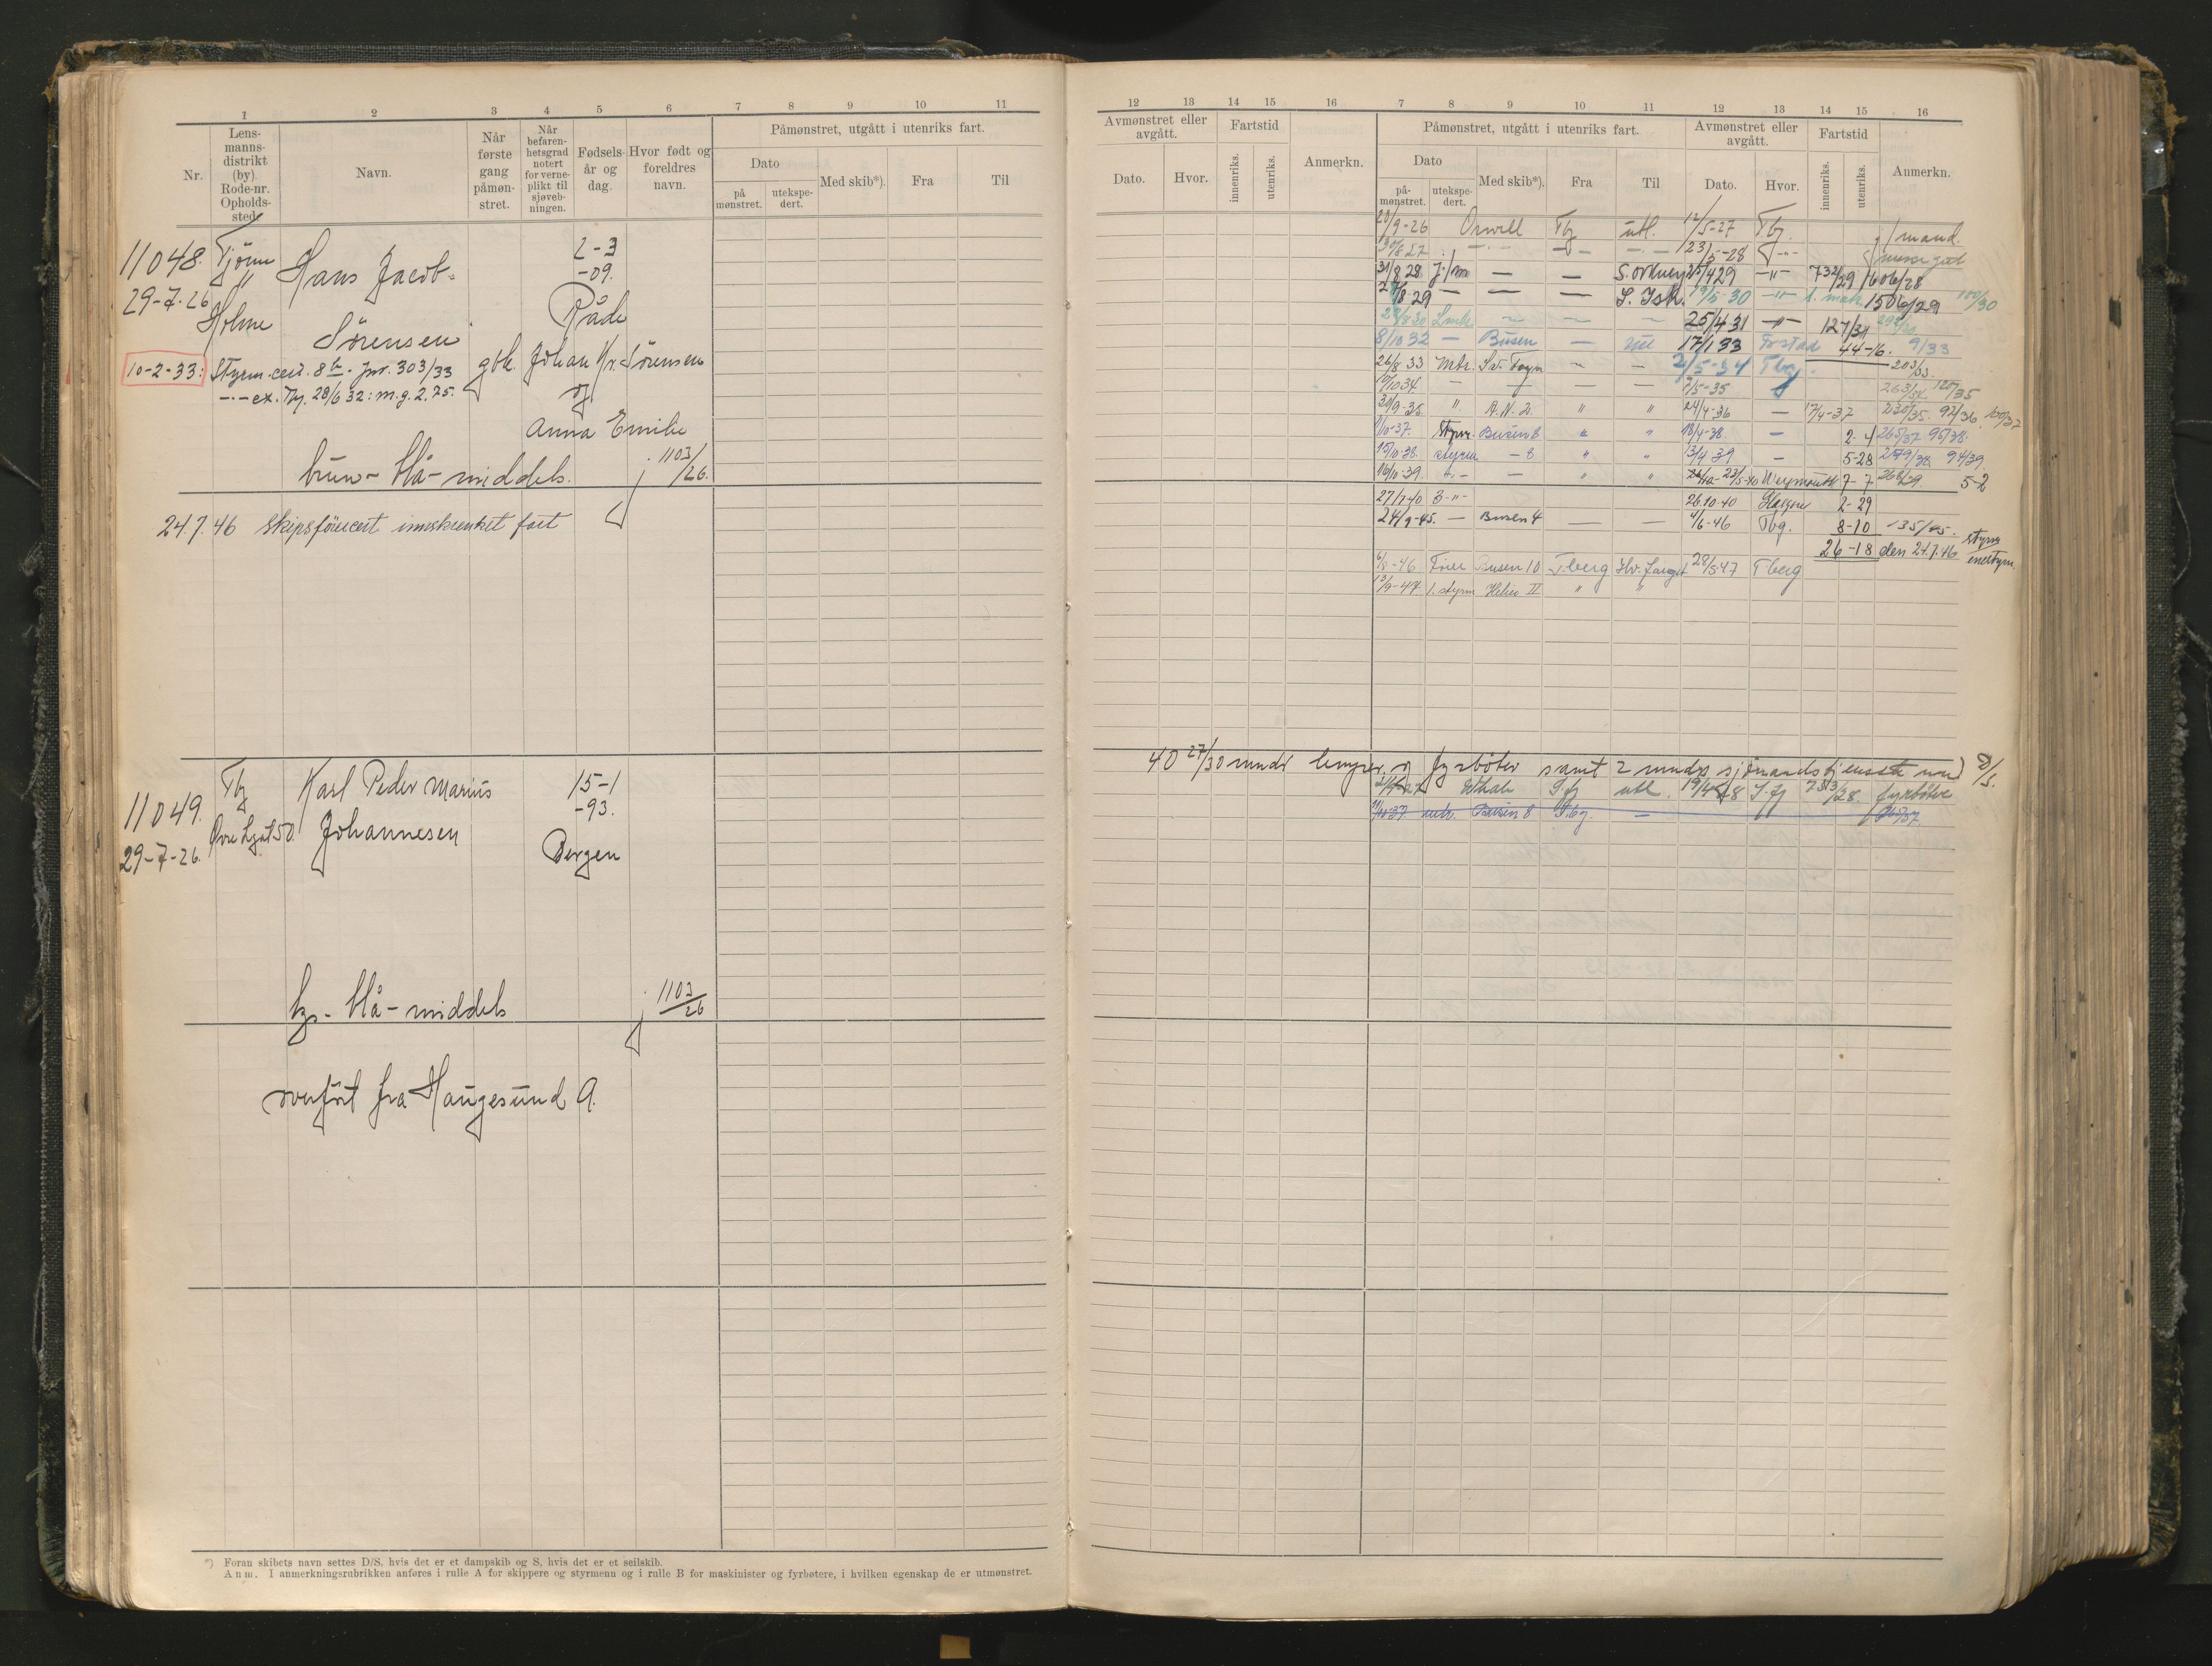 1 2 3 4 5 6 7 8 9 10 11
Nr. Lensmannsdistrikt (by). Rode-nr. Opholdssted. Navn. Når første gang påmønstret. Når befarenhetsgrad notert for verneplikt til sjøvebningen. Fødselsår og dag. Hvor født og foreldres navn. Påmønstret, utgått i utenriks fart.
Dato
på mønstret. utekspedert. Med skib*). Fra Til
11048. Tjøme Hans Jacob- 2-3
29-7-26 " -09.
Holme Sørensen Råde
10-2-33: Styrm.cert. 8 jnr. 303/33 gbk. Johan Kr. Sørensen
-"- ex. Tbg. 28/6 32: m.g. 2,75. og
Anna Emilie
brun - blå - middels. j 1103/26.
24.7.46 Skipsførercert innskrenket fart
11049. Tbg Karl Peder Marius 15-1
-93.
29-7-26. Øvre Lgat 50. Johannesen
Bergen
blå - middels j 1103/26
overført fra Haugesund A.
*) Foran skibets navn settes D/S, hvis det er et dampskib og S, hvis det er et seilskib.
Anm. I anmerkningsrubrikken anføres i rulle A for skippere og styrmenn og i rulle B for maskinister og fyrbøtere, i hvilken egenskap de er utmønstret.
12 13 14 15 16 7 8 9 10 11 12 13 14 15 16
Avmønstret eller avgått. Fartstid Anmerkn. Påmønstret, utgått i utenriks fart. Avmønstret eller avgått. Fartstid Anmerkn.
Dato. Hvor. innenriks. utenriks. Dato Med skib*). Fra Til Dato. Hvor. innenriks. utenriks.
påmønstret. utekspedert.
20/9-26 Orwell Tbg utl. 12/5-27 Tbg. j/mand.
30/8 27 -"- - -"- 23/5-28 -"-
31/8 28 j/m — — S. Orkney 25/4 29 -"- 732/29 1606/28
8 29 — — — 19/5-30 -"- 1506/29 100/30
— 25/4 31 -"- 127/31
8/10 32 — Busen — 17/1 33 44-16. 9/33
26/8-33 Mtr. Sv. Foyn — — 2/5-34 Tbg. 203/33
10 34 — — — — 7/5-35 263/34 120/35
30/9-35. " A.N. 2. " " 24/4-36 — 17/4-37 230/35. 92/36. 100/37
1/10-37. Styrm. Busen 8 " " 18/4-38. — 2-4 265/37 95/38.
15/10-38. styrm — 8 " " 13/4-39 — 5-28 279/38 94/39.
16/10-39. -"- — " " 23/5-40 Weymouth 7-7 268/39. 5-2
27/7-40 -"- 26.10.40 Glasgow 2-29
24/9-45. — Busen 4 — — 4/6-46 Tbg. 8-10 135/45.
26-18 den 24.7.46 styrm
6/8-46 Fører Busen 10 Tberg Hv. fangst 28/5 47 Tberg
13/9-47. 1. styrm Helios II " "
40 27/30 mndr lemper og fyrbøter samt 2 mndr sjømandstjeneste
27 Whale utl. 19/4-28 28. fyrbøter
11/10-37 mtr. Busen 8 Tbg. — 265/37.